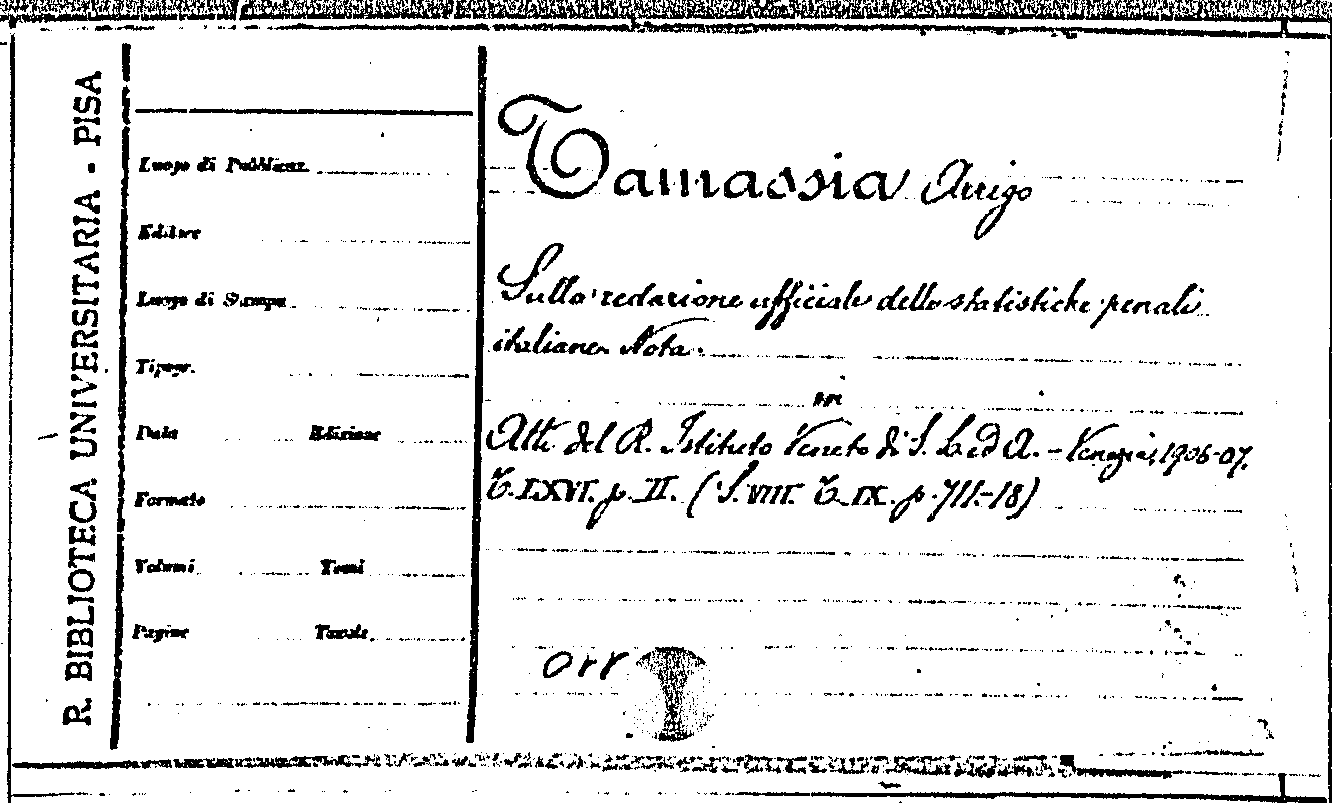 R. BIBLIOTECA UNIVERSITARIA - PISA
Luogo di Pubblicaz.
Editore
Luogo di Stampa
Tipogr.
Data Edizione
Formato
Volumi Tomi
Pagine Tavole
Tamassia Arrigo
Sulla redazione ufficiale delle statistiche penali
italiane. Nota.
in
Atti del R. Istituto Veneto di S. L. ed A. - Venezia, 1906-07.
T. LXVI. p. II. (S. VIII. T. IX. p. 711-18)